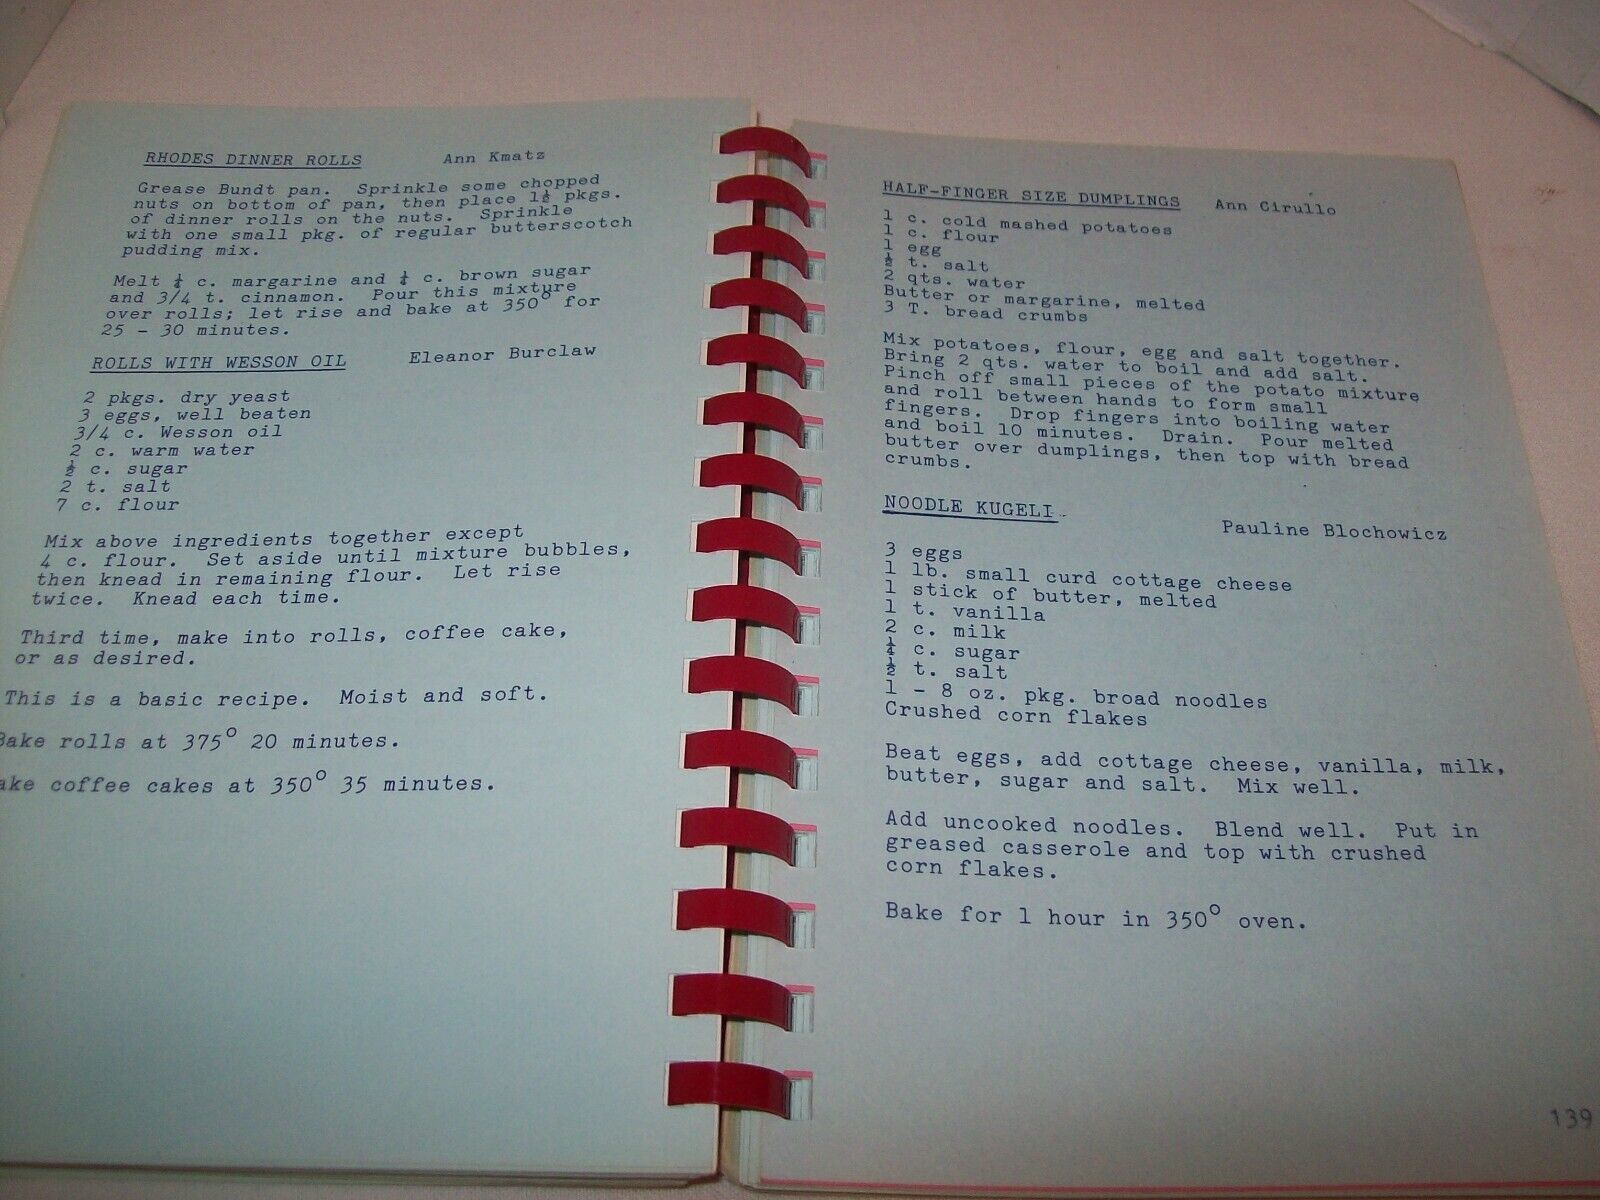 RHODES DINNER ROLLS Ann Kmatz
Grease Bundt pan. Sprinkle some chopped
nuts on bottom of pan, then place 1½ pkgs.
of dinner rolls on the nuts. Sprinkle
with one small pkg. of regular butterscotch
pudding mix.
Melt c. margarine and c. brown sugar
and 3/4 t. cinnamon. Pour this mixture
over rolls; let rise and bake at 350° for
25 - 30 minutes.
ROLLS WITH WESSON OIL Eleanor Burclaw
2 pkgs. dry yeast
3 eggs, well beaten
3/4 c. Wesson oil
2 c. warm water
½ c. sugar
2 t. salt
7 c. flour
Mix above ingredients together except
4 c. flour. Set aside until mixture bubbles,
then knead in remaining flour. Let rise
twice. Knead each time.
Third time, make into rolls, coffee cake,
or as desired.
This is a basic recipe. Moist and soft.
Bake rolls at 375° 20 minutes.
ake coffee cakes at 350° 35 minutes.
HALF-FINGER SIZE DUMPLINGS Ann Cirullo
1 c. cold mashed potatoes
1 c. flour
1 egg
½ t. salt
2 qts. water
Butter or margarine, melted
3 T. bread crumbs
Mix potatoes, flour, egg and salt together.
Bring 2 qts. water to boil and add salt.
Pinch off small pieces of the potato mixture
and roll between hands to form small
fingers. Drop fingers into boiling water
and boil 10 minutes. Drain. Pour melted
butter over dumplings, then top with bread
crumbs.
NOODLE KUGELI
Pauline Blochowicz
3 eggs
1 lb. small curd cottage cheese
1 stick of butter, melted
1 t. vanilla
2 c. milk
¼ c. sugar
½ t. salt
1 - 8 oz. pkg. broad noodles
Crushed corn flakes
Beat eggs, add cottage cheese, vanilla, milk,
butter, sugar and salt. Mix well.
Add uncooked noodles. Blend well. Put in
greased casserole and top with crushed
corn flakes.
Bake for 1 hour in 350° oven.
139